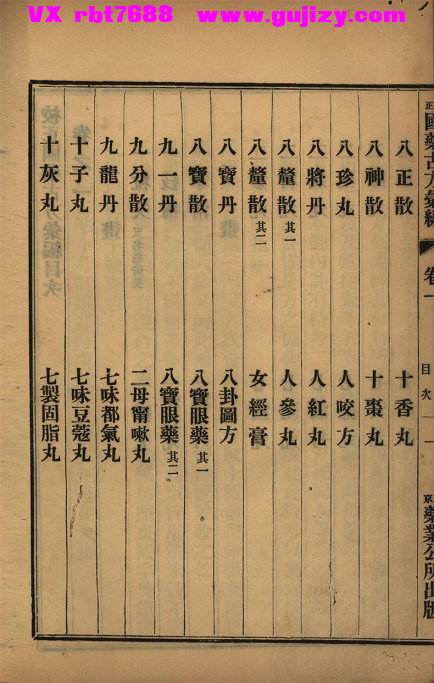 VX rbt7688 www.gujizy.com
正
國藥古方彙編
卷一
目次
一
京
藥業公所出版
八正散
十香丸
八神散
十棗丸
八珍丸
人咬方
八將丹
人紅丸
八釐散 其一
人參丸
八釐散 其二
女經膏
八寶丹
八卦圖方
八寶散
八寶眼藥 其一
九一丹
八寶眼藥 其二
九分散
二母甯嗽丸
九龍丹
七味都氣丸
十子丸
七味豆蔻丸
十灰丸
七製固脂丸